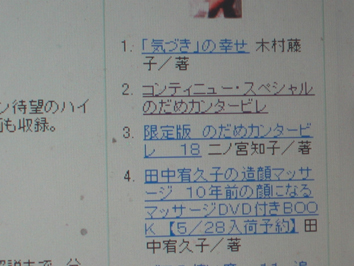 1. 「気づき」の幸せ 木村藤
子／著
ン待望のハイ
も収録。
2. コンティニュー・スペシャル
のだめカンタービレ
3. 限定版 のだめカンタービ
レ 18 二ノ宮知子／著
4. 田中宥久子の造顔マッサ
ージ 10年前の顔になる
マッサージDVD付きBOO
K 【5／28入荷予約】 田
中宥久子／著